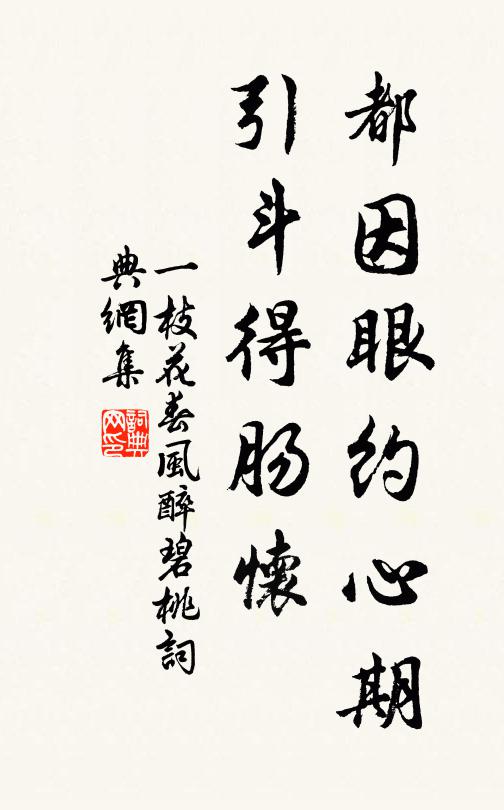 都因眼约心期
引斗得肠懷
一枝花春風醉碧桃詞
典網集
詞典
网印